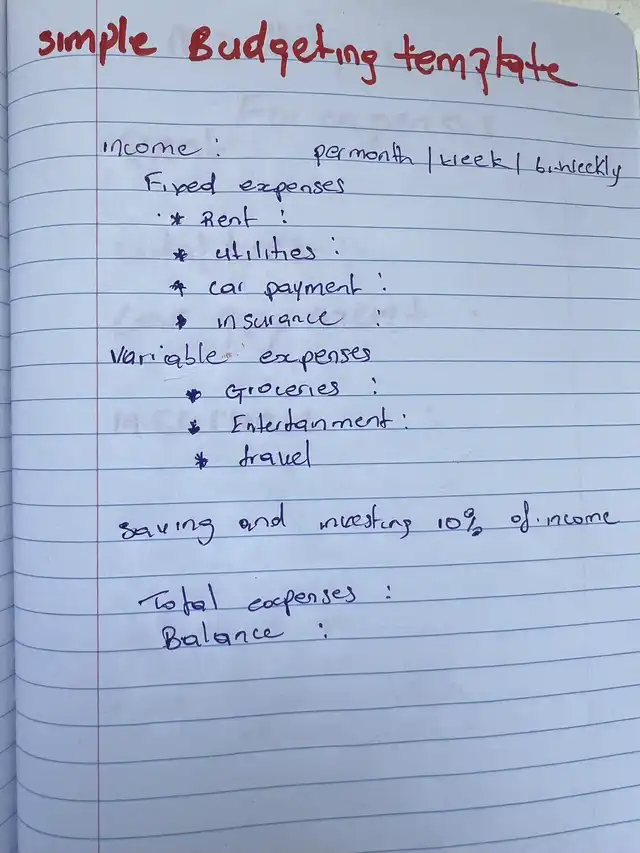 simple Budgeting template
income : per month / week / bi-weekly
Fixed expenses
* Rent :
* utilities :
* car payment :
* insurance :
Variable expenses
* Groceries :
* Entertainment :
* travel
saving and investing 10% of income
Total expenses :
Balance :